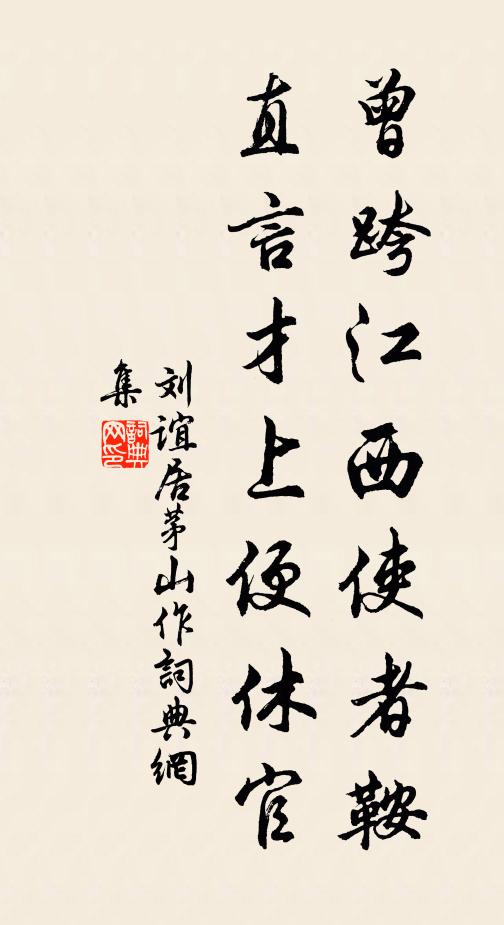 曾跨江西使者鞍
直言才上便休官
刘谊居茅山作詞典網
集
詞典网印